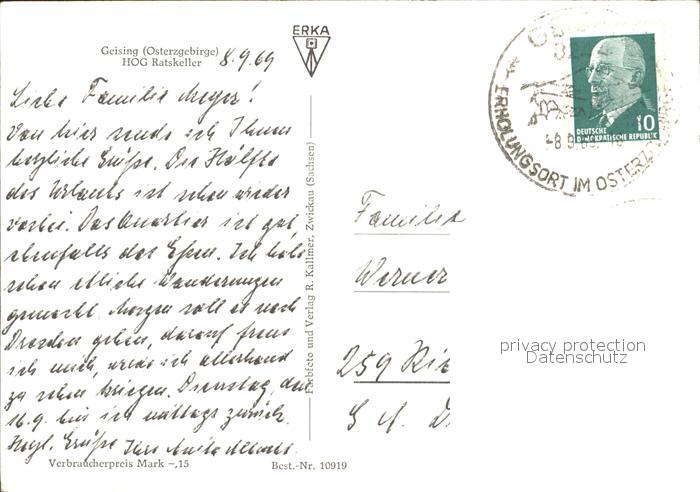 Geising (Osterzgebirge)
HOG Ratskeller
8.9.69
ERKA
Liebe Familie Meyer!
Von hier sende ich Ihnen
herzliche Grüße. Die Hälfte
des Urlaubs ist schon wieder
vorbei. Das Quartier ist gut,
ebenfalls das Essen. Ich habe
schon etliche Wanderungen
gemacht. Morgen soll es nach
Dresden gehen, darauf freue
ich mich, werde ich allerhand
zu sehen kriegen. Dienstag, den
16.9. bin ich mittags zurück.
Herzl. Grüße Ihre Anita
Verbraucherpreis Mark –,15
Best.-Nr. 10919
Farbfoto und Verlag R. Kallmer, Zwickau (Sachsen)
ERHOLUNGSORT IM OSTERZ
DEUTSCHE
DEMOKRATISCHE REPUBLIK
10
Familie
Werner
259 Rib
privacy protection
Datenschutz